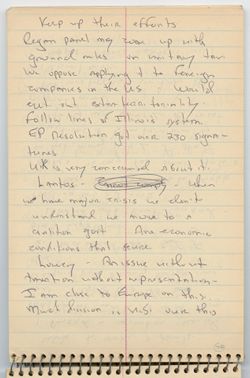 Keep up their efforts
Regan panel may come up with
ground rules on unitary tax
We oppose applying it to foreign
companies in the US. Would
cut out extra territoriality
Follow lines of Illinois system.
EP Resolution got over 230 signa-
tures
UK is very concerned about it.
Lantos - - When
we have major crisis we don't
understand we move to a
coalition govt Are economic
conditions that severe
Lowery - An issue without
taxation without representation -
I am close to Europe on this.
Much division in US over this